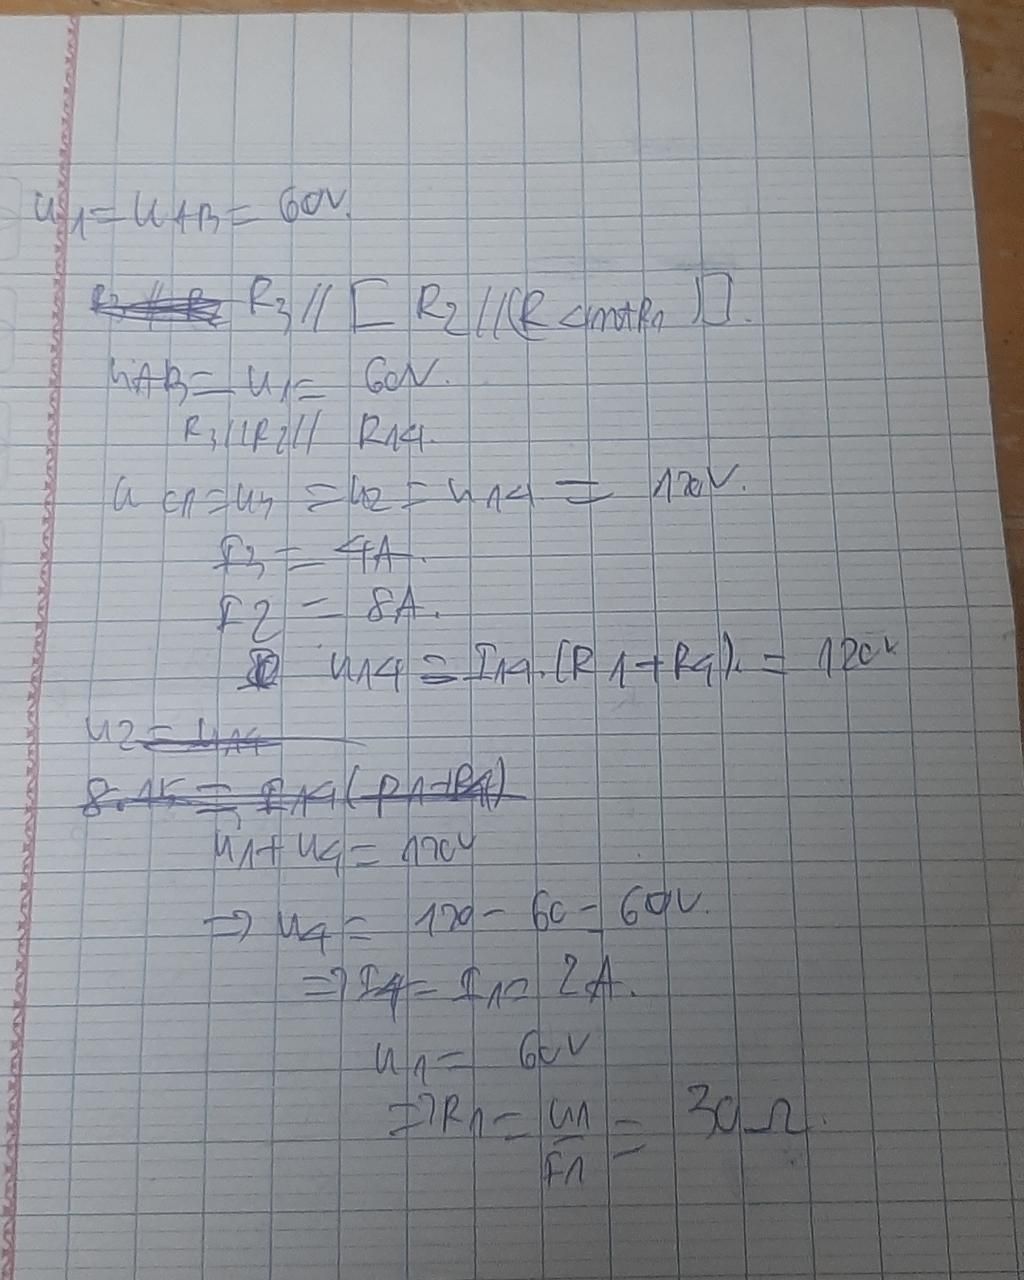 U1 = UAB = 60V.
R3 // [ R2 // (R R1 ) ].
UAB = U1 = 60V.
R3 // R2 // R14.
U = U3 = U2 = U14 = 120V.
I3 = 4A.
I2 = 8A.
U14 = I14.(R1+R4). = 120V
U2 = U14
8.15 = I14(R1+R4)
U1 + U4 = 120V
=> U4 = 120 - 60 = 60V.
=> I4 = I1 = 2A.
U1 = 60V
=> R1 = U1/I1 = 30Ω.